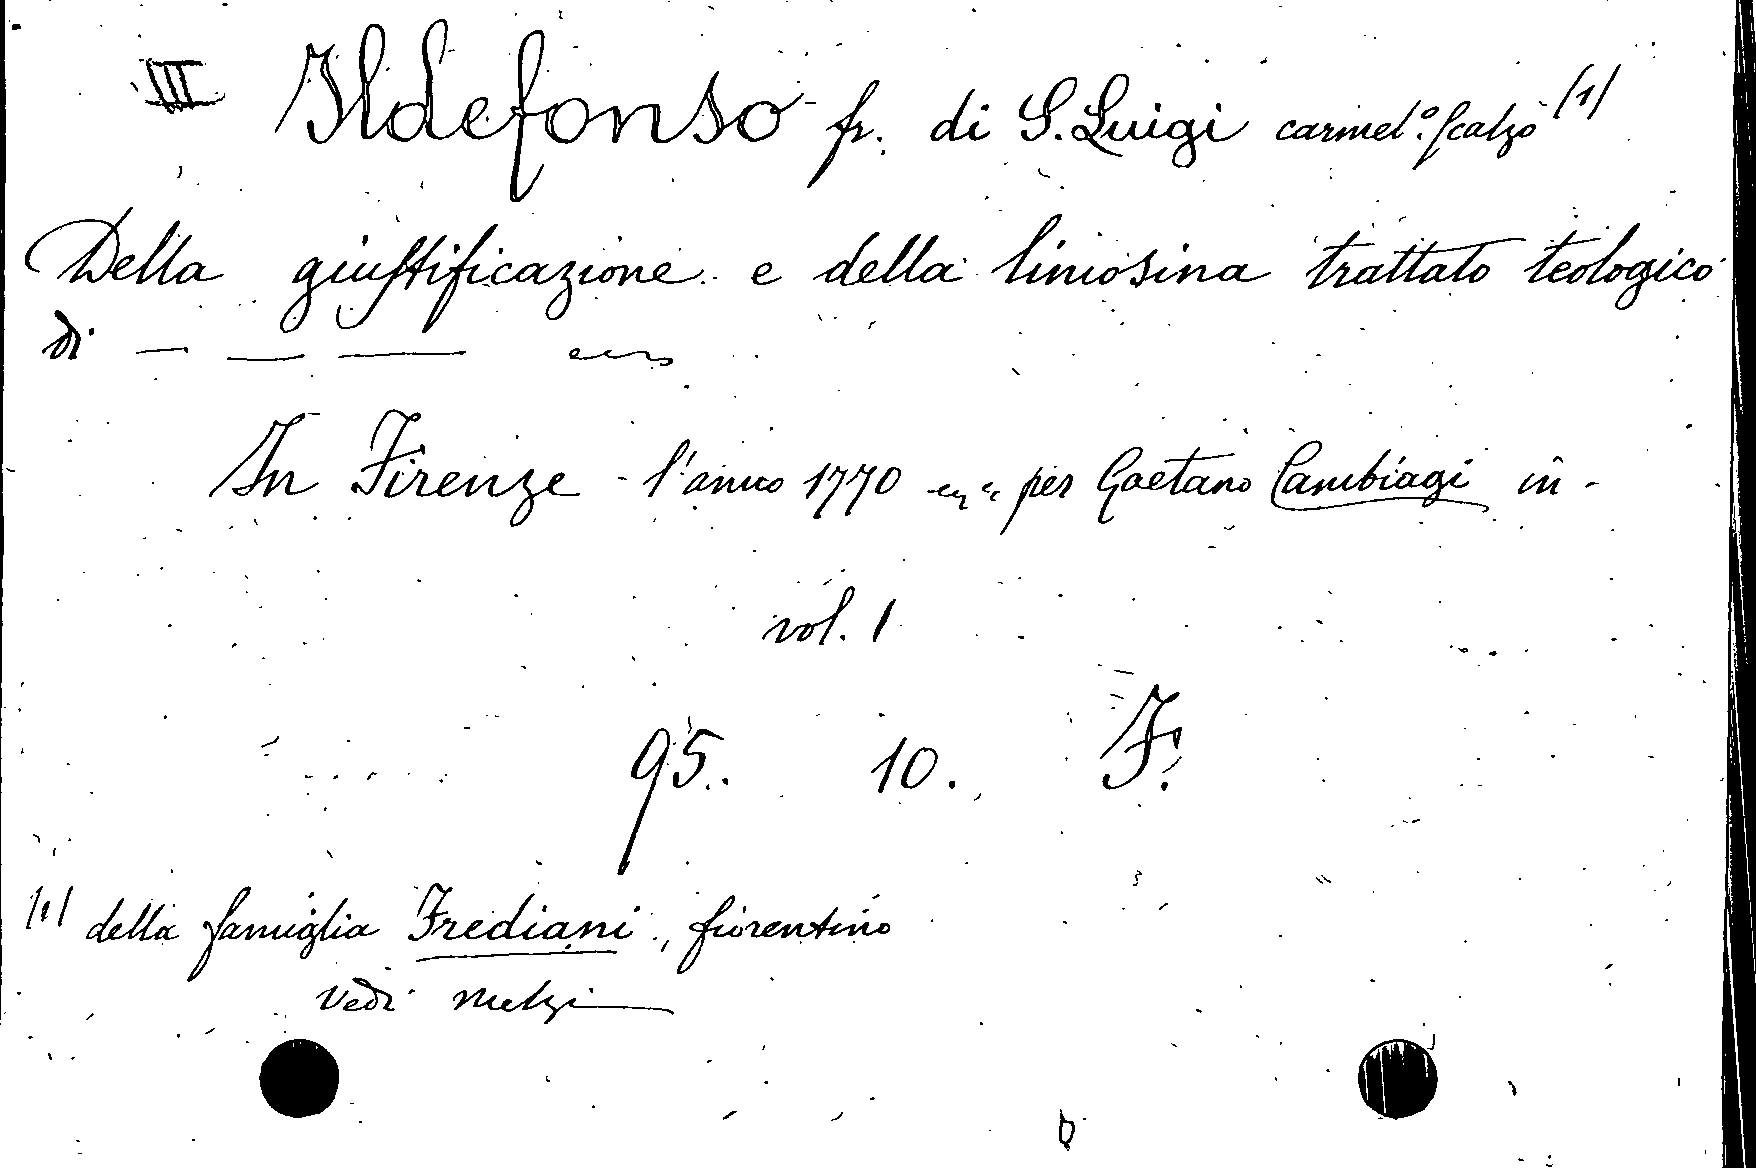 III Ildefonso fr. di S. Luigi carmel.º scalzo (1)
Della giustificazione e della limosina trattato teologico
di — — —
In Firenze - l'anno 1770 per Gaetano Cambiagi in -
vol. 1
95. 10. F.
(1) della famiglia Frediani, fiorentino
Vedi Melzi